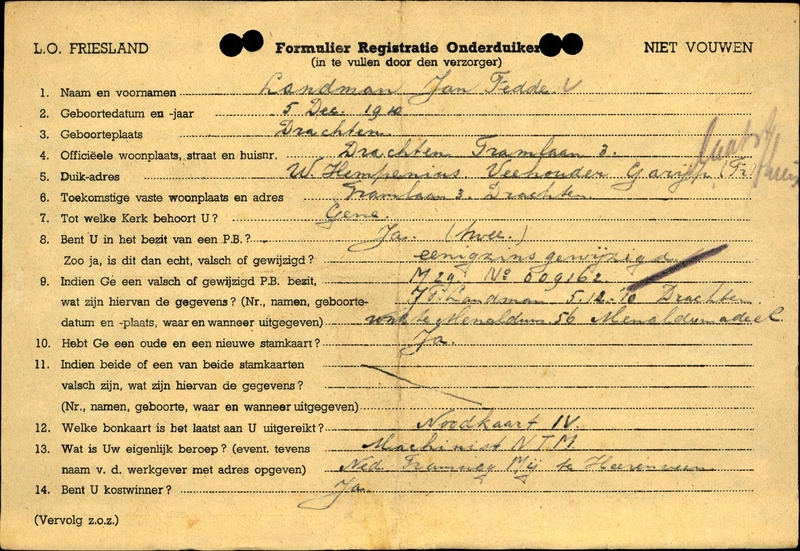 L.O. FRIESLAND Formulier Registratie Onderduiker NIET VOUWEN
(in te vullen door den verzorger)
1. Naam en voornamen Landman Jan Fedde
2. Geboortedatum en -jaar 5 Dec. 1910
3. Geboorteplaats Drachten
4. Officiëele woonplaats, straat en huisnr. Drachten Tramlaan 3.
5. Duik-adres W. Hempenius Veehouder Garijp (Fr)
6. Toekomstige vaste woonplaats en adres Tramlaan 3. Drachten
7. Tot welke Kerk behoort U? Gene.
8. Bent U in het bezit van een P.B.? Ja. (twee.)
Zoo ja, is dit dan echt, valsch of gewijzigd? eenigzins gewijzigd
9. Indien Ge een valsch of gewijzigd P.B. bezit, M 29. No 009162
wat zijn hiervan de gegevens? (Nr., namen, geboorte- J F. Landman 5-12-'10 Drachten
datum en -plaats, waar en wanneer uitgegeven) te Menaldum 56 Menaldumadeel
10. Hebt Ge een oude en een nieuwe stamkaart? Ja.
11. Indien beide of een van beide stamkaarten
valsch zijn, wat zijn hiervan de gegevens?
(Nr., namen, geboorte, waar en wanneer uitgegeven)
12. Welke bonkaart is het laatst aan U uitgereikt? Noodkaart IV.
13. Wat is Uw eigenlijk beroep? (event. tevens Machinist NTM
naam v. d. werkgever met adres opgeven) Ned Tramweg Mij te Heerenveen
14. Bent U kostwinner? Ja.
(Vervolg z.o.z.)